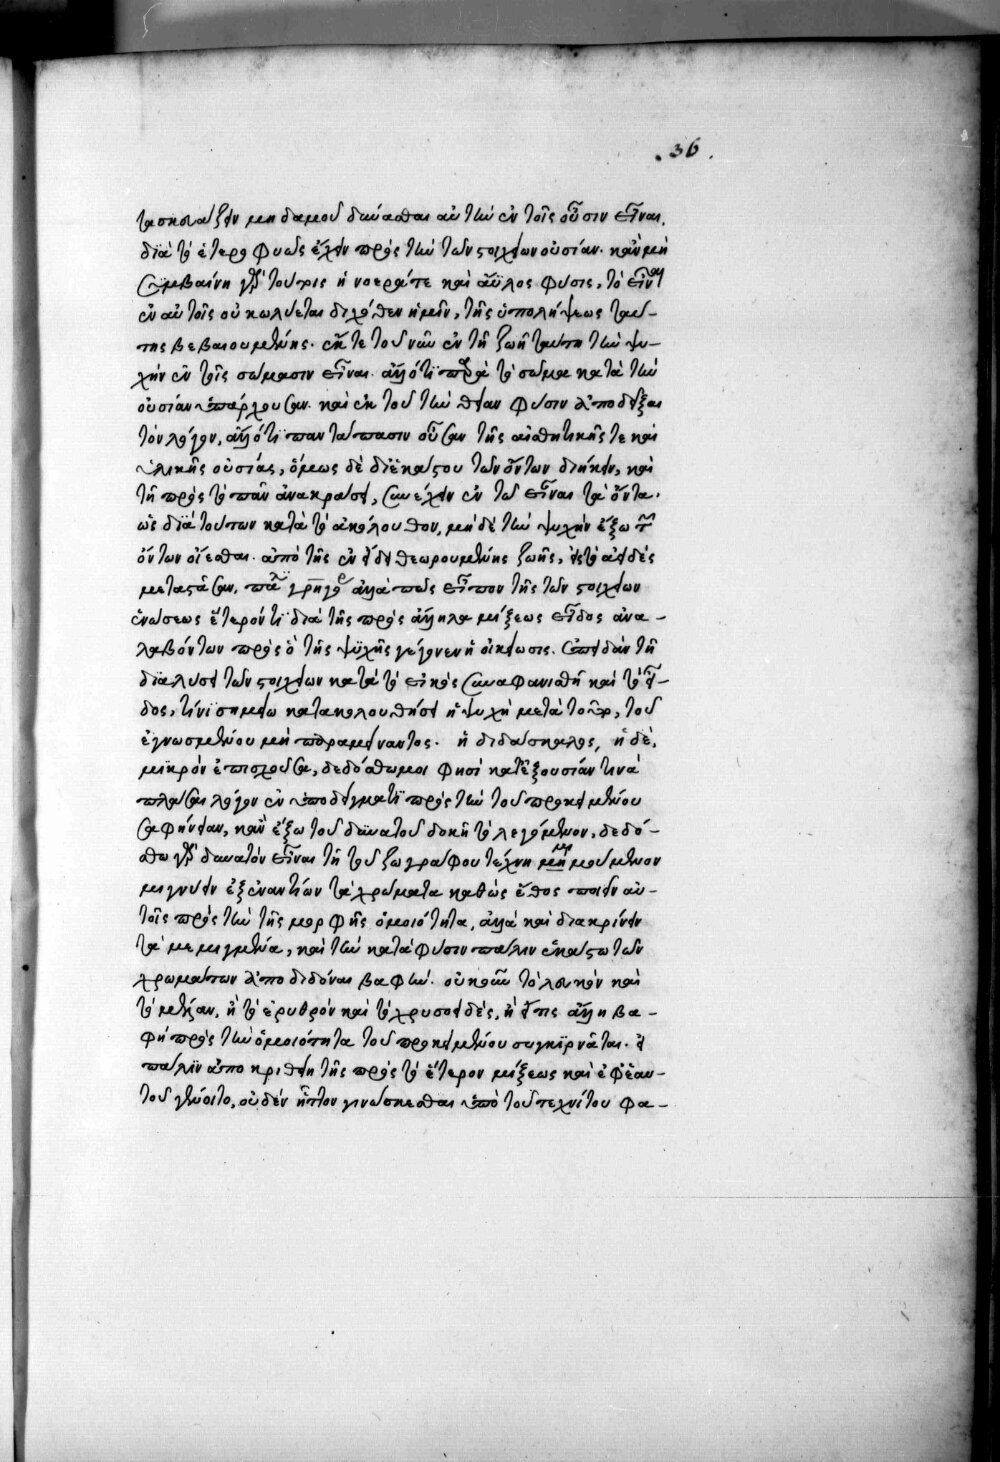 .36.
κατασκευάζειν μηδαμοῦ δύνασθαι αὐτὴν ἐν τοῖς οὖσιν εἶναι.
διὰ τὸ ἑτεροφυῶς ἔχειν πρὸς τὴν τῶν στοιχείων οὐσίαν. κἂν μὴ
συμβαίνη γὰρ τούτοις ἡ νοερά τε καὶ ἄϋλος φύσις, τὸ εἶναι
ἐν αὐτοῖς οὐ κωλύεται διχόθεν ἡμῖν, τῆς ὑπολήψεως ταύ-
της βεβαιουμένης. ἔκ τε τοῦ νῦν ἐν τῆ ζωῆ ταύτη τὴν ψυ-
χὴν ἐν τοῖς σώμασιν εἶναι. ἄλλό τι παρὰ τὸ σῶμα κατὰ τὴν
οὐσίαν ὑπάρχουσαν. καὶ ἐκ τοῦ τὴν θείαν φύσιν ἀποδεῖξαι
τὸν λόγον, ἄλλό τι παντάπασιν οὖσαν τῆς αἰσθητικῆς τε καὶ
ὑλικῆς οὐσίας, ὅμως δὲ δι ἑκάστου τῶν ὄντων διήκειν, καὶ
τῆ πρὸς τὸ πᾶν ἀνακράσει, συνέχειν ἐν τῶ εἶναι τὰ ὄντα.
ὡς διὰ τούτων κατὰ τὸ ἀκόλουθον, μηδὲ τὴν ψυχὴν ἔξω τῶν
ὄντων οἴεσθαι. ἀπὸ τῆς ἐν εἴδει θεωρουμένης ζωῆς, εἰς τὸ ἀειδὲς
μεταστᾶσαν. γρηγό ἀλλὰ πῶς εἶπον τῆς τῶν στοιχείων
ἑνώσεως ἕτερόν τι διὰ τῆς πρὸς ἄλληλα μίξεως εἶδος ἀνα-
λαβόντων πρὸς ὃ τῆς ψυχῆς γέγονεν ἡ οἰκείωσις. ἐπειδὰν τῆ
διαλύσει τῶν στοιχείων κατὰ τὸ εἰκὸς συναφανισθῆ καὶ τὸ εἶ-
δος, τίνι σημείω κατακολουθήσει ἡ ψυχὴ μετὰ τοῦτο, τοῦ
ἐγνωσμένου μὴ παραμείναντος. ἡ διδάσκαλος, ἡ δὲ,
μικρὸν ἐπισχοῦσα, δεδόσθω μοι φησὶ κατ ἐξουσίαν τινὰ
πλάσαι λόγον ἐν ὑποδείγματι πρὸς τὴν τοῦ προκειμένου
σαφήνειαν, κἂν ἔξω τοῦ δυνατοῦ δοκῆ τὸ λεγόμενον. δεδό-
σθω γὰρ δυνατὸν εἶναι τῆ τοῦ ζωγράφου τέχνη μὴ μούμενον
μιγνύειν ἐξ ἐναντίων τὰ χρώματα καθὼς ἔθος ποιεῖν αὐ-
τοῖς πρὸς τὴν τῆς μορφῆς ὁμοιότητα, ἀλλὰ καὶ διακρίνειν
τὰ μεμιγμένα, καὶ τὴν κατὰ φύσιν πάλιν ἑκάστω τῶν
χρωμάτων ἀποδιδόναι βαφήν. οὐκοῦν τὸ λευκὸν καὶ
τὸ μέλαν, ἢ τὸ ἐρυθρὸν καὶ τὸ χρυσοειδὲς, ἢ εἴ τις ἄλλη βα-
φὴ πρὸς τὴν ὁμοιότητα τοῦ προκειμένου συγκίρναται. εἰ
πάλιν ἀποκριθείη τῆς πρὸς τὸ ἕτερον μίξεως καὶ ἐφ ἑαυ-
τοῦ γένοιτο, οὐδὲν ἧττον γινώσκεσθαι ὑπὸ τοῦ τεχνίτου φα-